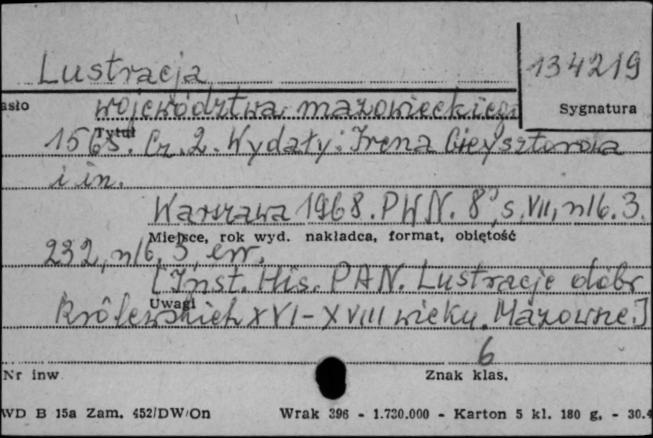 Lustracja
134219
asło
województwa mazowieckiego
Sygnatura
Tytuł
1565. Cz. 2. Wydały: Irena Gieysztorowa
i in.
Warszawa 1968. PWN. 8°, s. VII, nlb. 3.
Miejsce, rok wyd. nakładca, format, objętość
232, nlb. 3, err.
[Inst. His. PAN. Lustracje dóbr
Uwagi
Królewskich XVI-XVIII wieku. Mazowsze]
6
Nr inw
Znak klas.
WD B 15a Zam. 452/DW/On
Wrak 396 - 1.730.000 - Karton 5 kl. 180 g. - 30.4